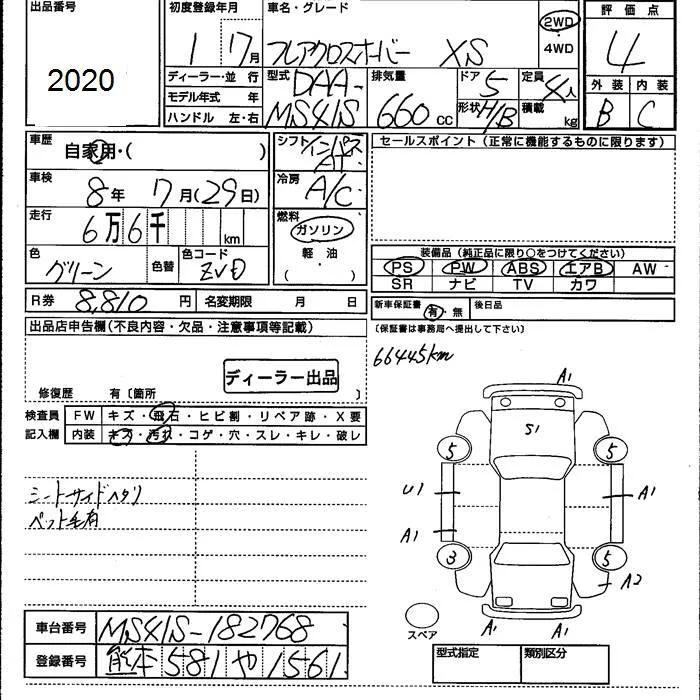 出品番号
2020
初度登録年月
1 7月
車名・グレード
フレアクロスオーバー XS
2WD
・
4WD
評価点
4
外装 内装
B C
ディーラー・並行
モデル年式 年
ハンドル 左・右
型式
DAA-
MS41S
排気量
660 cc
ドア
5
形状 H/B
定員
4人
積載
kg
車歴
自家用・( )
車検
8年 7月(29日)
走行
6万6千 km
色
グリーン
色替
色コード
ZVD
シフト
インパネ
AT
冷房
A/C
燃料
ガソリン
軽・油
( )
セールスポイント (正常に機能するものに限ります)
装備品 (純正品に限り○をつけてください)
PS PW ABS エアB AW
SR ナビ TV カワ
R券 8,810 円 名変期限 月 日
新車保証書
有・無
後日品
(保証書は事務局へ提出して下さい)
出品店申告欄 (不良内容・欠品・注意事項等記載)
ディーラー出品
修復歴 有〔箇所 〕
66445km
検査員
記入欄
FW キズ・飛石・ヒビ割・リペア跡・X要
内装 キズ・汚れ・コゲ・穴・スレ・キレ・破レ
シートサイドヘタリ
ペット毛有
A1
S1
5 5
U1 A1
A1
3 5
A2
A1 A1
スペア
車台番号 MS41S-182768
登録番号 熊本581や1561
型式指定 類別区分